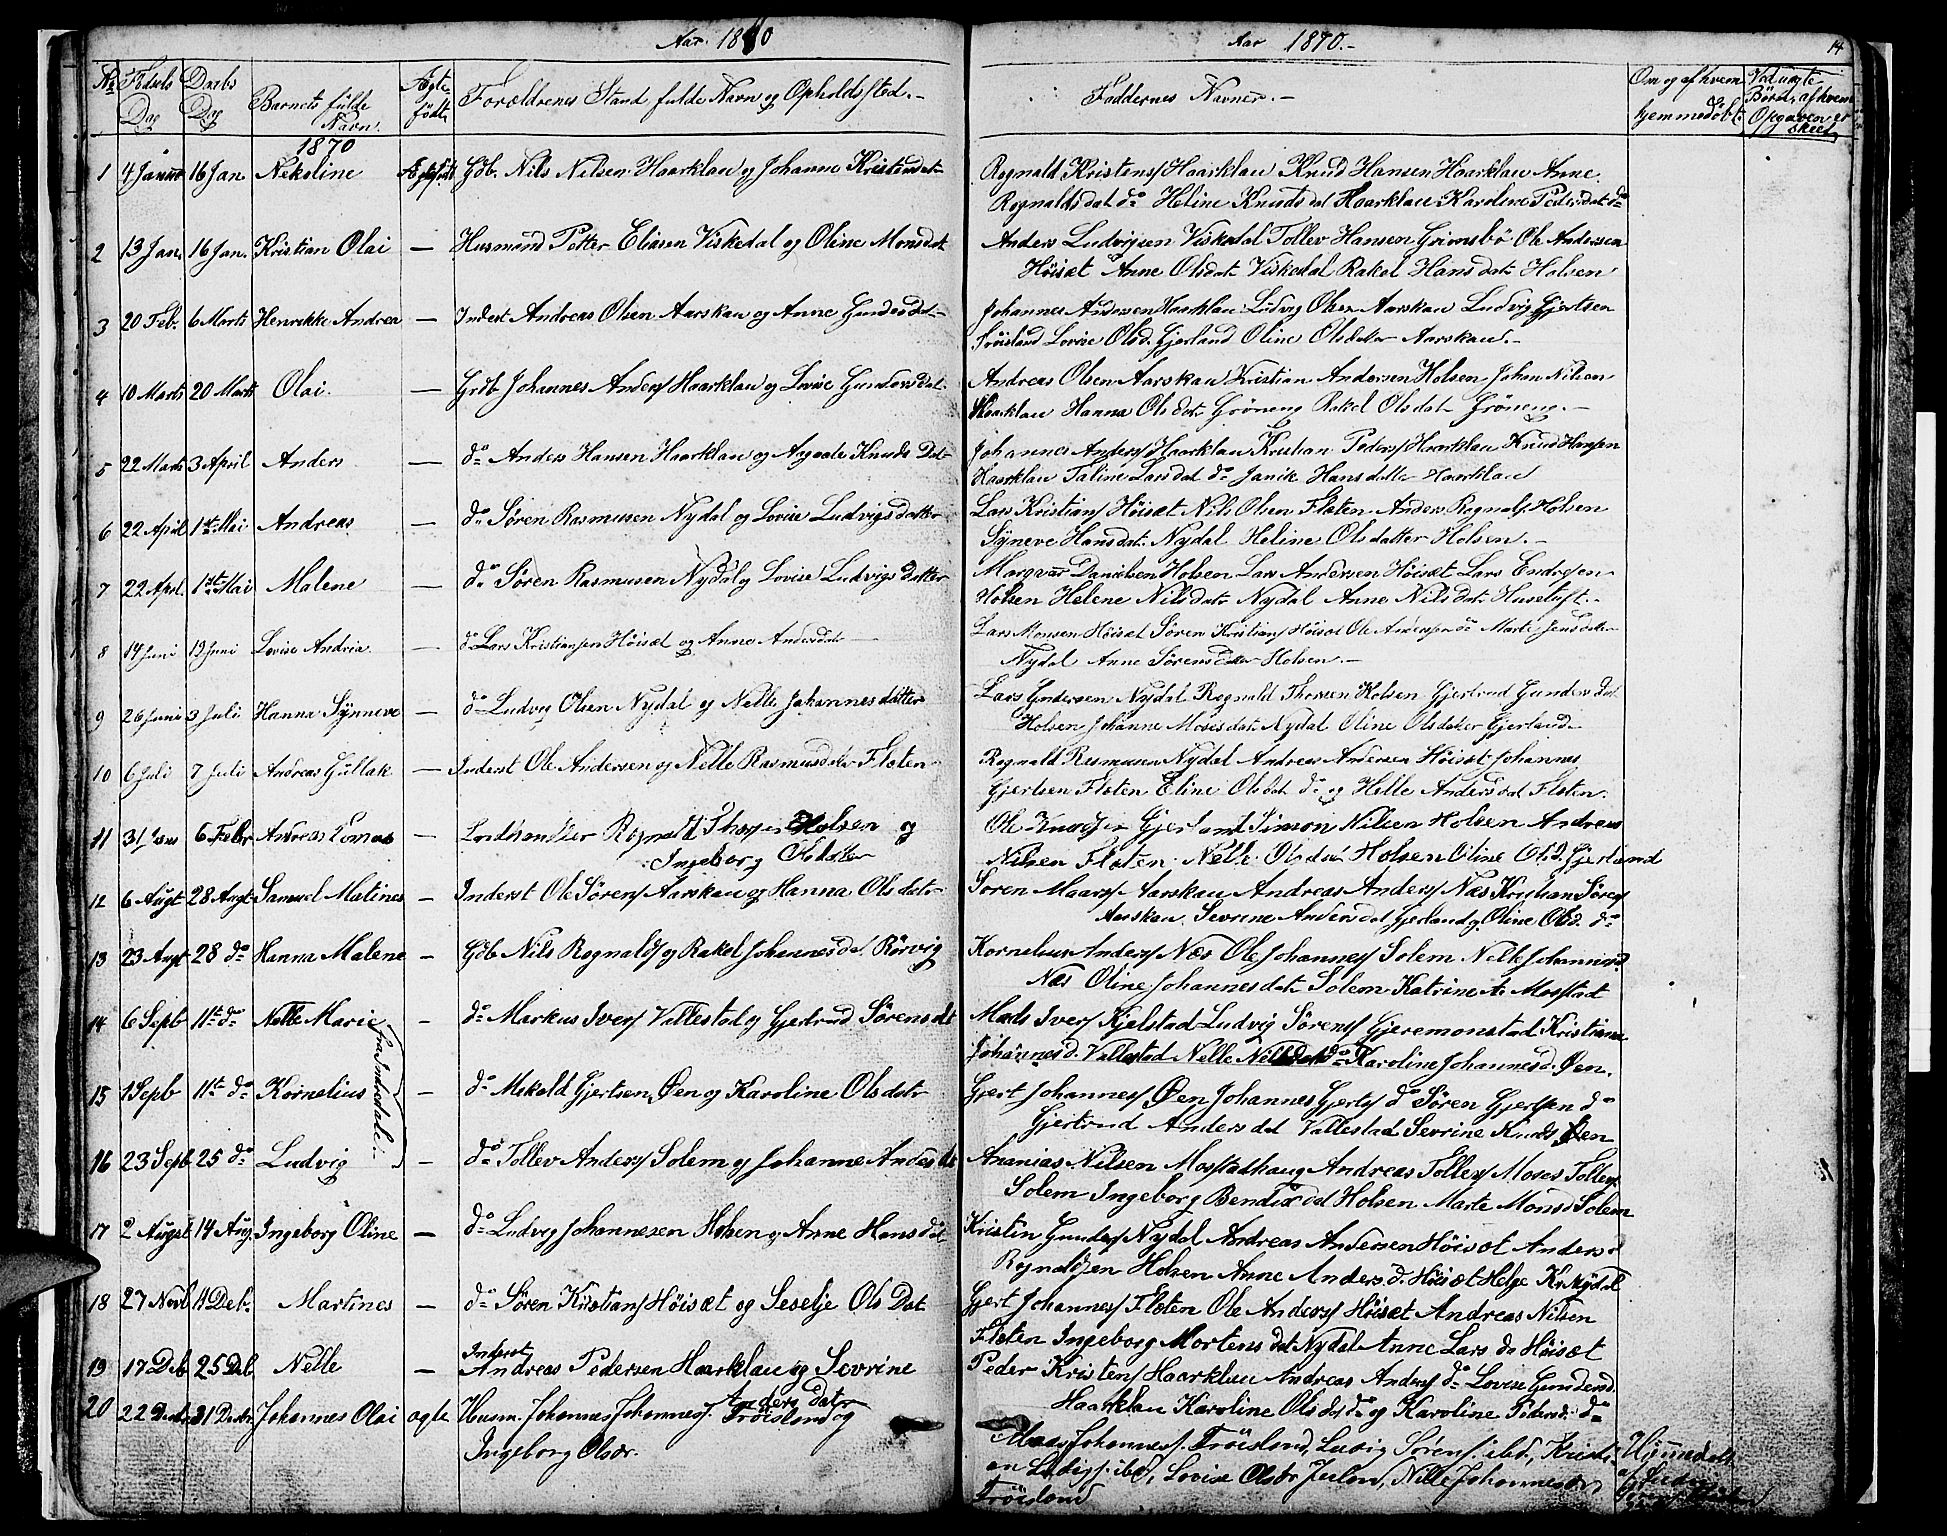 Aar 1870
Aar 1870.-
14
No Fødsels Dag Daabs Dag Barnets fulde Navn. Ægte født Forældrenes Stand fulde Navn og Opholdssted.-
Faddernes Navner.- Om og af hvem hjemmedøbt. Ved uægte Børn, af hvem Opgaven er skeet
1870
1 4 Januar 16 Jan Nekoline Ægtefødt Gdb. Nils Nilsen Haarklau og Johanne Kristensdat
Rognald Kristens Haarklau Knud Hansen Haarklau Anne
Rognaldsdat do Heline Knudsdat Haarklau Karoline Pedersdat do
2 13 Jan. 16 Jan. Kristian Olai — Husmand Petter Eliasen Viskedal og Oline Monsdat
Anders Ludvigsen Viskedal Tollev Hansen Grimsbø Ole Andersen
Høisæt Anne Olsdat Viskedal Rakel Hansdat Holsen
3 20 Feb. 6 Marts Henrikke Andrea — Inderst Andreas Olsen Aarskau og Anne Gundersdat-
Johannes Andersen Haarklau Ludvig Olsen Aarskau Ludvig Gjertsen
Trøisland Lovise Olsd. Gjerland Oline Olsdatter Aarskau.-
4 10 Marts 20 Marts Olai. — Grdb Johannes Anders Haarklau og Lovise Gundersdat
Andreas Olsen Aarskau Kristian Andersen Holsen Johan Nilsen
Haarklau Hanna Olsdat Grøneng Rakel Olsdat Grøneng.-
5 22 Marts 3 April Anders — do Anders Hansen Haarklau og Aagaate Knuds Dat
Johannes Anders Haarklau Kristian Peders Haarklau Knud Hansen
Haarklau Taline Larsdat do Janik Hansdatter Haarklau
6 22 April 1ste Mai Andreas — do Søren Rasmusen Nydal og Lovise Ludvigsdatter
Lars Kristians Høisæt Nils Olsen Flaten Anders Rognals Holsen
Syneve Hansdat Nydal Heline Olsdatter Holsen.-
7 22 Apri. 1ste Mai Malene — do Søren Rasmusen Nydal og Lovise Ludvigs datter
Margvar Danielsen Holsen Lars Andersen Høisæt Lars Endresen
Holsen Helene Nilsdat Nydal Anne Nilsdat Husetuft.-
8 14 Juni 19 Juni Lovise Andria — do Lars Kristiansen Høisæt og Anne Andersdat
Lars Monsen Høisæt Søren Kristians Høisæt Ole Andersen do Marte Jensdatter
Nydal Anne Sørensdatter Holsen.-
9 26 Juni 3 Juli Hanna Synneve — do Ludvig Olsen Nydal og Nelle Johannesdatter
Lars Gundersen Nydal Rognald Thorsen Holsen Gjertrud Gundersdat
Holsen Johanne Mosesdat Nydal Oline Olsdatter Gjerland
10 6 Juli 7 Juli Andreas Gullak — Inderst Ole Andersen og Nelle Rasmusdatr Flaten
Rognald Rasmusen Nydal Andreas Andersen Høisæt Johannes
Gjertsen Flaten Eline Olsdat do og Helle Andersdat Flaten.
11 31 Jan 6 Febr Andreas Tomas — Landhandler Rognald Thorsen Holsen og
Ingeborg Olsdatter
Ole Knudsen Gjerland Simon Nilsen Holsen Andreas
Nilsen Flaten. Nelle Olsdat Holsen Oline Olsd. Gjerland
12 6 Augt 28 Augt Samuel Matines — Inderst Ole Sørens Aarskau og Hanna Olsdat
Søren Maars Aarskau Andreas Anders Næs Kristian Sørens
Aarskau. Sevrine Andersdat Gjerland og Oline Olsd. do
13 23 Augt 28 do Hanna Malene — Gdb Nils Rognalds og Rakel Johannesdat Rørvig
Kornelius Anders Næs Ole Johannes Solem Nelle Johannesd
Næs Oline Johannesdat Solem Katrine A. Mostad
14 6 Sept 11te do Nelle Marie — do Markus Ivers Vallestad og Gjertrud Sørensdt
Mads Ivers Kjelstad Ludvig Sørens Gjeremonstad Kristiane
Johannesd. Vallestad Nelle Nilsdat do Karoline Johannesd. Øen.
15 1 Sepb 11te do Kornelius — do Mikald Gjertsen Øen og Karoline Olsdatr
Gjert Johannes Øen Johannes Gjerts do Søren Gjertsen do
Gjertrud Andersdat Vallestad Sevrine Knuds Øen
16 23 Sepb 25 do Ludvig — do Tollev Anders Solem og Johanne Andersdt
Ananias Nilsen Mostadhaug Andreas Tollevs Moses Tollevs
Solem Ingeborg Bendixdat Holsen Marte Monsd Solem
17 2 August 14 Aug Ingeborg Oline — do Ludvig Johannesen Holsen og Anne Hansdat
Kristen Gunders Nydal Andreas Andersen Høisæt Anders
Rognaldsen Holsen Anne Anders.d. Høisæt Helge Kr. Nydal
18 27 Novb 11 Deb. Martines — do Søren Kristians Høisæt og Seselje Ols Dat
Gjert Johannes Flaten Ole Anders Høisæt Andreas Nilsen
Flaten Ingeborg Mortensdat Nydal Anne Lars do Høisæt
19 17 Deb 25 Deb Nelle — Inderst Andreas Pedersen Haarklau og Sevrine
Andersdatr
Peder Kristens Haarklau Andreas Anders do Lovise Gundersd.
Haarklau Karoline Olsdat do og Karoline Pedersd. do
20 22 Decbr 31 Decbr Johannes Olai ægte Husm. Johannes Johannes. Trøisland og
Ingeborg Olsdr.
Maas Johannes. Trøisland, Ludvig Sørens ibd, Kristi-
an Ludvigs. ibd, Lovise Olsdr Julen, Nille Johannesdr
Trøisland
Hjemmedøbt
af